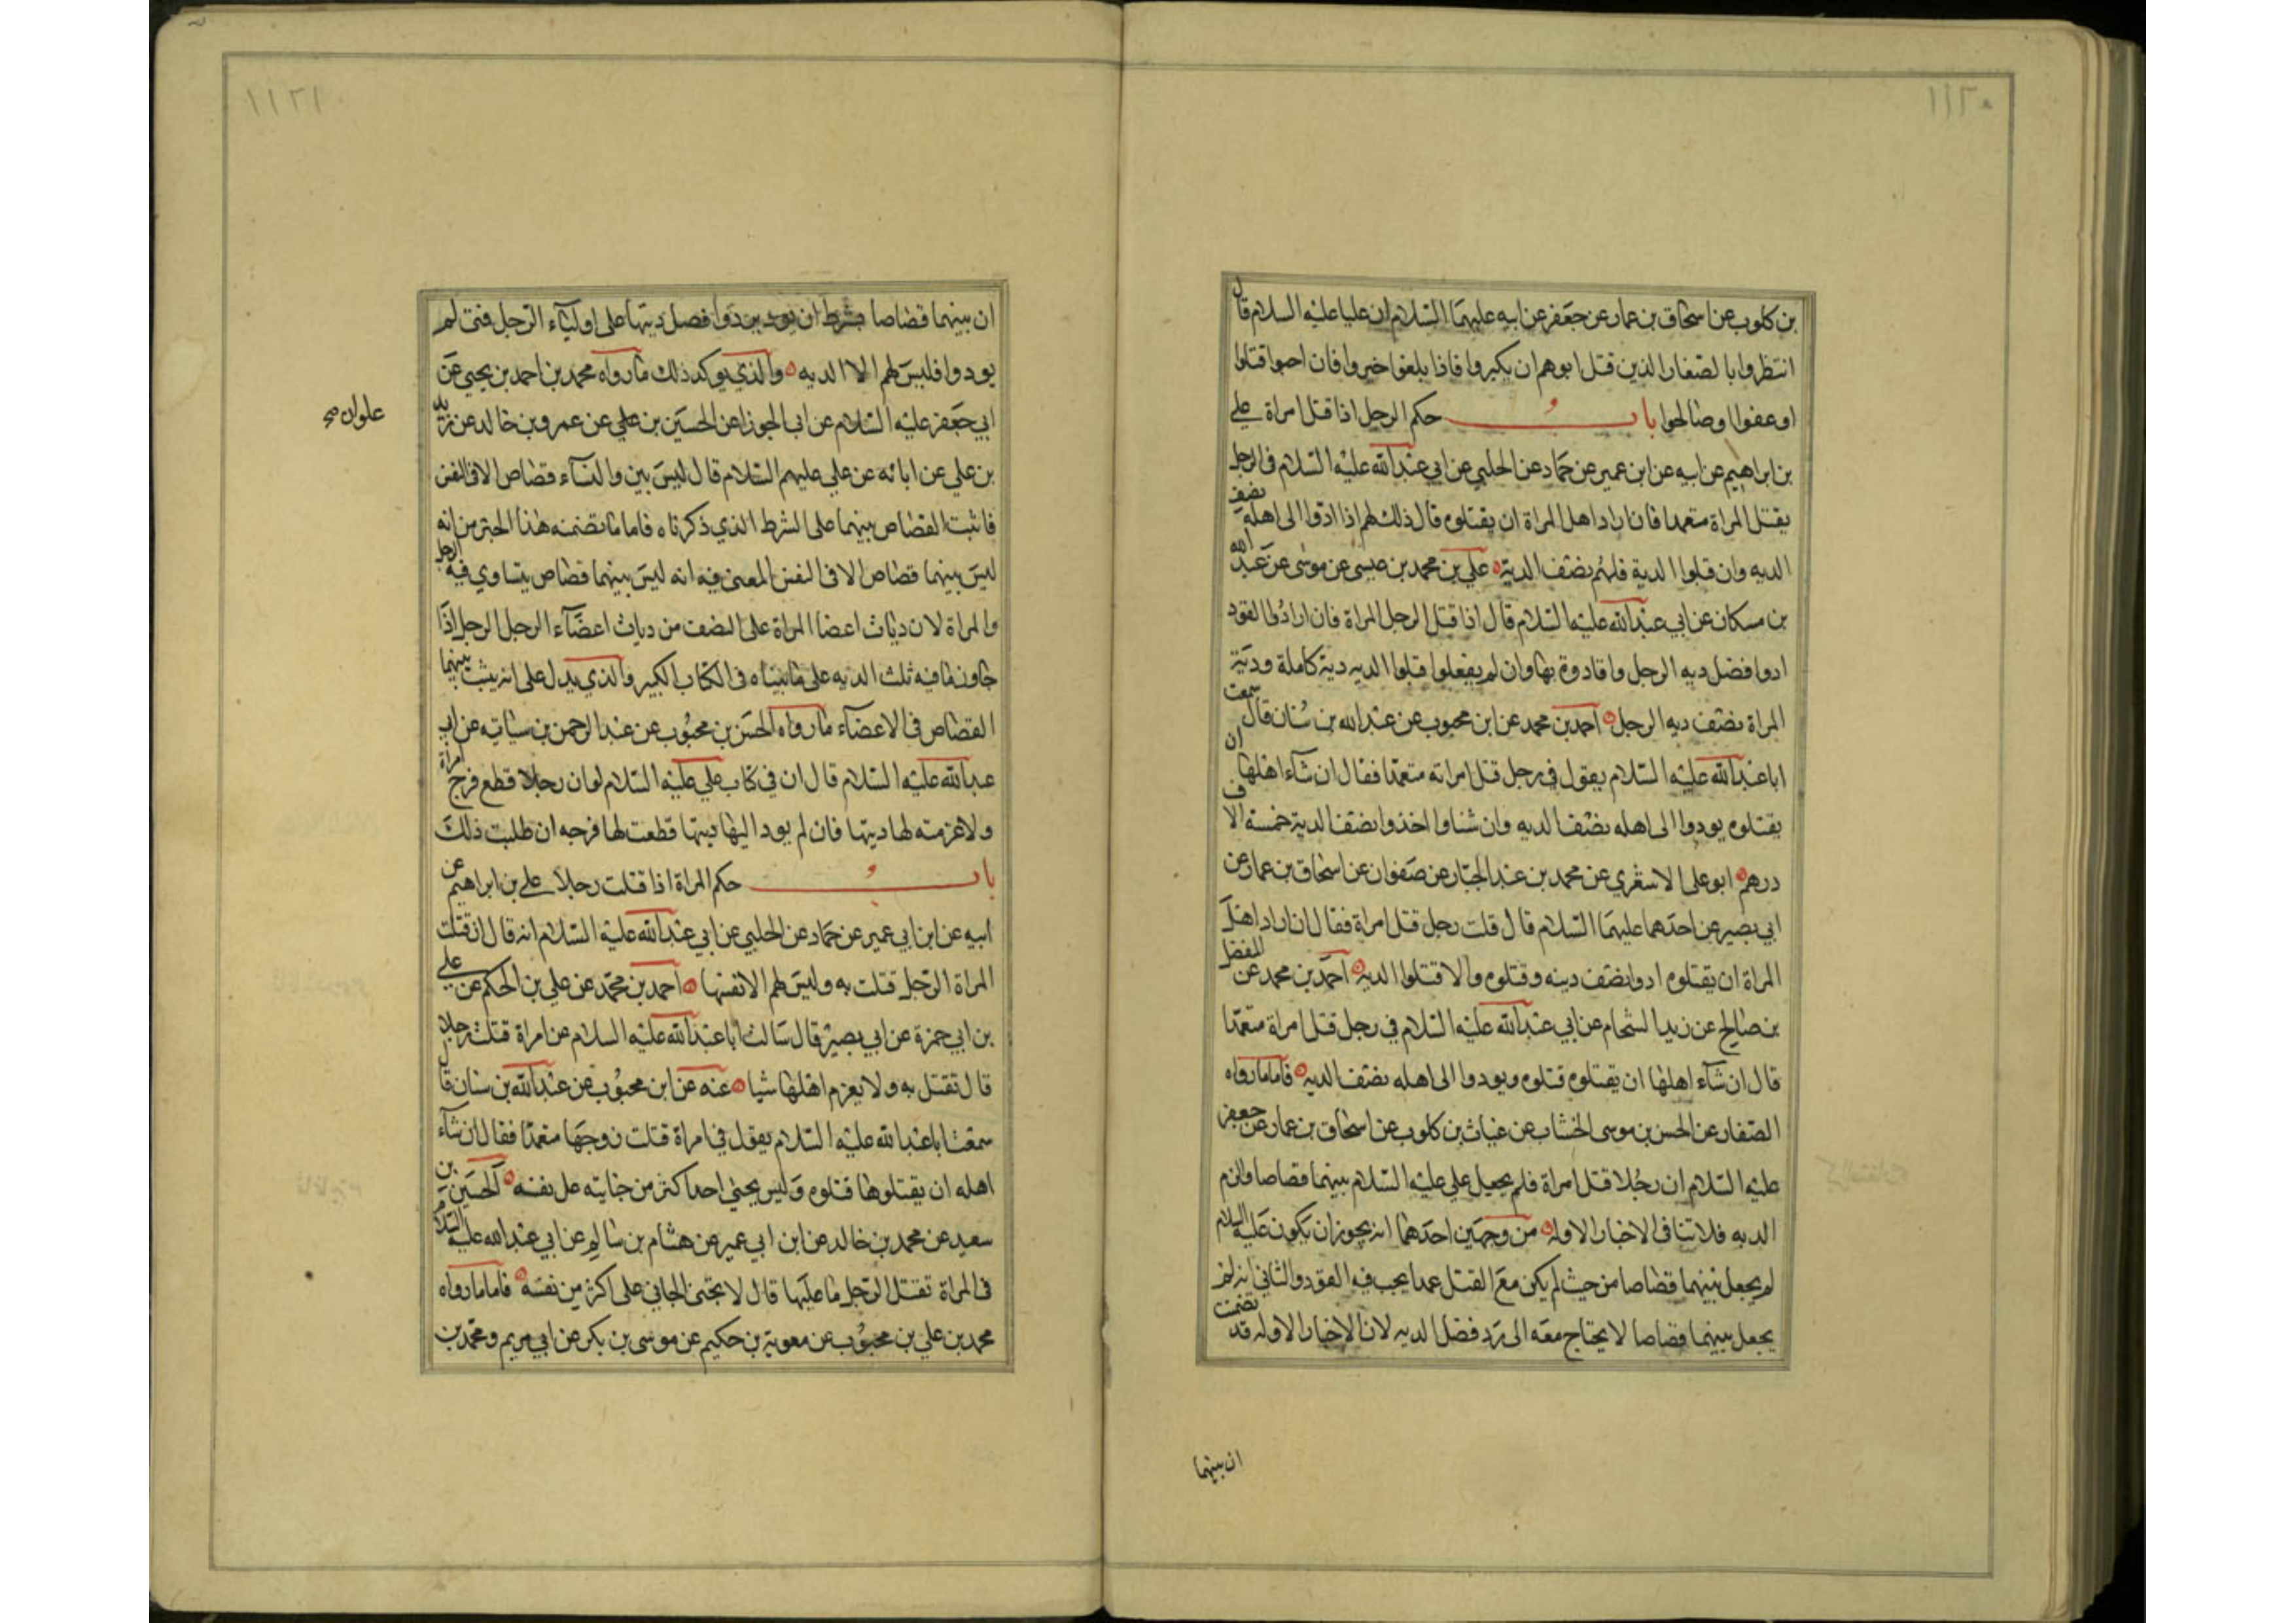 ١١٢٠
بن كلوب عن اسحاق بن عمار عن جعفر عن ابيه عليهما السلام ان عليا عليه السلام قال
انتظروا بالصغار الذين قتل ابوهم ان يكبروا فاذا بلغوا خيروا فان احبوا قتلوا
او عفوا وصالحوا باب حكم الرجل اذا قتل امراة علي
بن ابراهيم عن ابيه عن ابن عمير عن حماد عن الحلبي عن ابي عبدالله عليه السلام في الرجل
يقتل المراة متعمدا فان اراد اهل المراة ان يقتلوه قال ذلك لهم اذا ادوا الى اهله نصف
الديه وان قبلوا الدية فلهم نصف الدية علي بن محمد بن عيسى عن موسى عن عبد الله
بن مسكان عن ابي عبدالله عليه السلام قال اذا قتل الرجل المراة فان ارادوا القود
ادوا فضل ديه الرجل واقادوه بها وان لم يفعلوا قبلوا الديه دية كاملة ودية
المراة نصف ديه الرجل احمد بن محمد عن ابن محبوب عن عبدالله بن سنان قال سمعت
اباعبدالله عليه السلام يقول في رجل قتل امراته متعمدا فقال ان شآء اهلها ان
يقتلوه يودوا الى اهله نصف الديه وان شاوا اخذوا نصف الدية خمسة الاف
درهم ابو على الاشعري عن محمد بن عبد الجبار عن صفوان عن اسحاق بن عمار عن
ابي بصير عن احدهما عليهما السلام قال قلت رجل قتل امراة فقال ان اراد اهل
المراة ان يقتلوه ادوا نصف ديته وقتلوه والا قتلوا الديه احمد بن محمد عن المفضل
بن صالح عن زيد الشحام عن ابي عبدالله عليه السلام في رجل قتل امراة متعمدا
قال ان شآء اهلها ان يقتلوه قتلوه ويودوا الى اهله نصف الديه فاما ما رواه
الصفار عن الحسن بن موسى الخشاب عن غياث بن كلوب عن اسحاق بن عمار عن جعفر
عليه السلام ان رجلا قتل امراة فلم يجعل علي عليه السلام بينهما قصاصا والزم
الديه فلا تنافي الاخبار الاوله من وجهين احدهما انه يجوز ان يكون عليه السلام
لم يجعل بينهما قصاصا من حيث لم يكن مع القتل عمدا يجب فيه القود والثاني انه لم
يجعل بينهما قصاصا لا يحتاج معه الى رد فضل الديه لان الاخبار الاوله قد تضمنت
ان بينهما
١١٢١
ان بينهما قصاصا بشرط ان يردوا فضل ديتها على اوليآء الرجل فمتى لم
يودوا فليس لهم الا الديه والذي يوكد ذلك ما رواه محمد بن احمد بن يحيى عن
ابي جعفر عليه السلام عن ابي الجوزا عن الحسين بن علي عن عمرو بن خالد عن زيد
علوان صح
بن علي عن ابائه عن علي عليهم السلام قال ليس بين والنسآء قصاص الا في النفس
فاثبت القصاص بينهما على الشرط الذي ذكرناه فاما ما تضمنه هذا الخبر من انه
ليس بينهما قصاص الا في النفس المعنى فيه انه ليس بينهما قصاص يتساوي فيه الرجل
والمراة لان ديات اعضا المراة على النصف من ديات اعضآء الرجل الرجل اذا
جاوز ما فيه ثلث الديه على ما بيناه في الكتاب الكبير والذي يدل على انه يثبت بينهما
القصاص في الاعضآء ما رواه الحسن بن محبوب عن عبد الرحمن بن سيابه عن ابي
عبدالله عليه السلام قال ان في كتاب علي عليه السلام لو ان رجلا قطع فرج امراة
ولاغرمته لها ديتها فان لم يود اليها ديتها قطعت لها فرجه ان طلبت ذلك
باب حكم المراة اذا قتلت رجلا علي بن ابراهيم عن
ابيه عن ابن ابي عمير عن حماد عن الحلبي عن ابي عبدالله عليه السلام انه قال ان قتلت
المراة الرجل قتلت به وليس لهم الا نفسها احمد بن محمد عن علي بن الحكم عن علي
بن ابي حمزة عن ابي بصير قال سالت اباعبدالله عليه السلام عن امراة قتلت رجلا
قال تقتل به ولا يغرم اهلها شيا عنه عن ابن محبوب عن عبدالله بن سنان قال
سمعت اباعبدالله عليه السلام يقول في امراة قتلت زوجها متعمدا فقال ان شآء
اهله ان يقتلوها قتلوه وليس يجني احد اكثر من جنايته على نفسه الحسين بن
سعيد عن محمد بن خالد عن ابن ابي عمير عن هشام بن سالم عن ابي عبدالله عليه السلام
في المراة تقتل الرجل ما عليها قال لا يجنى الجاني على اكثر من نفسه فاما ما رواه
محمد بن علي بن محبوب عن معوية بن حكيم عن موسى بن بكر عن ابي مريم ومحمد بن